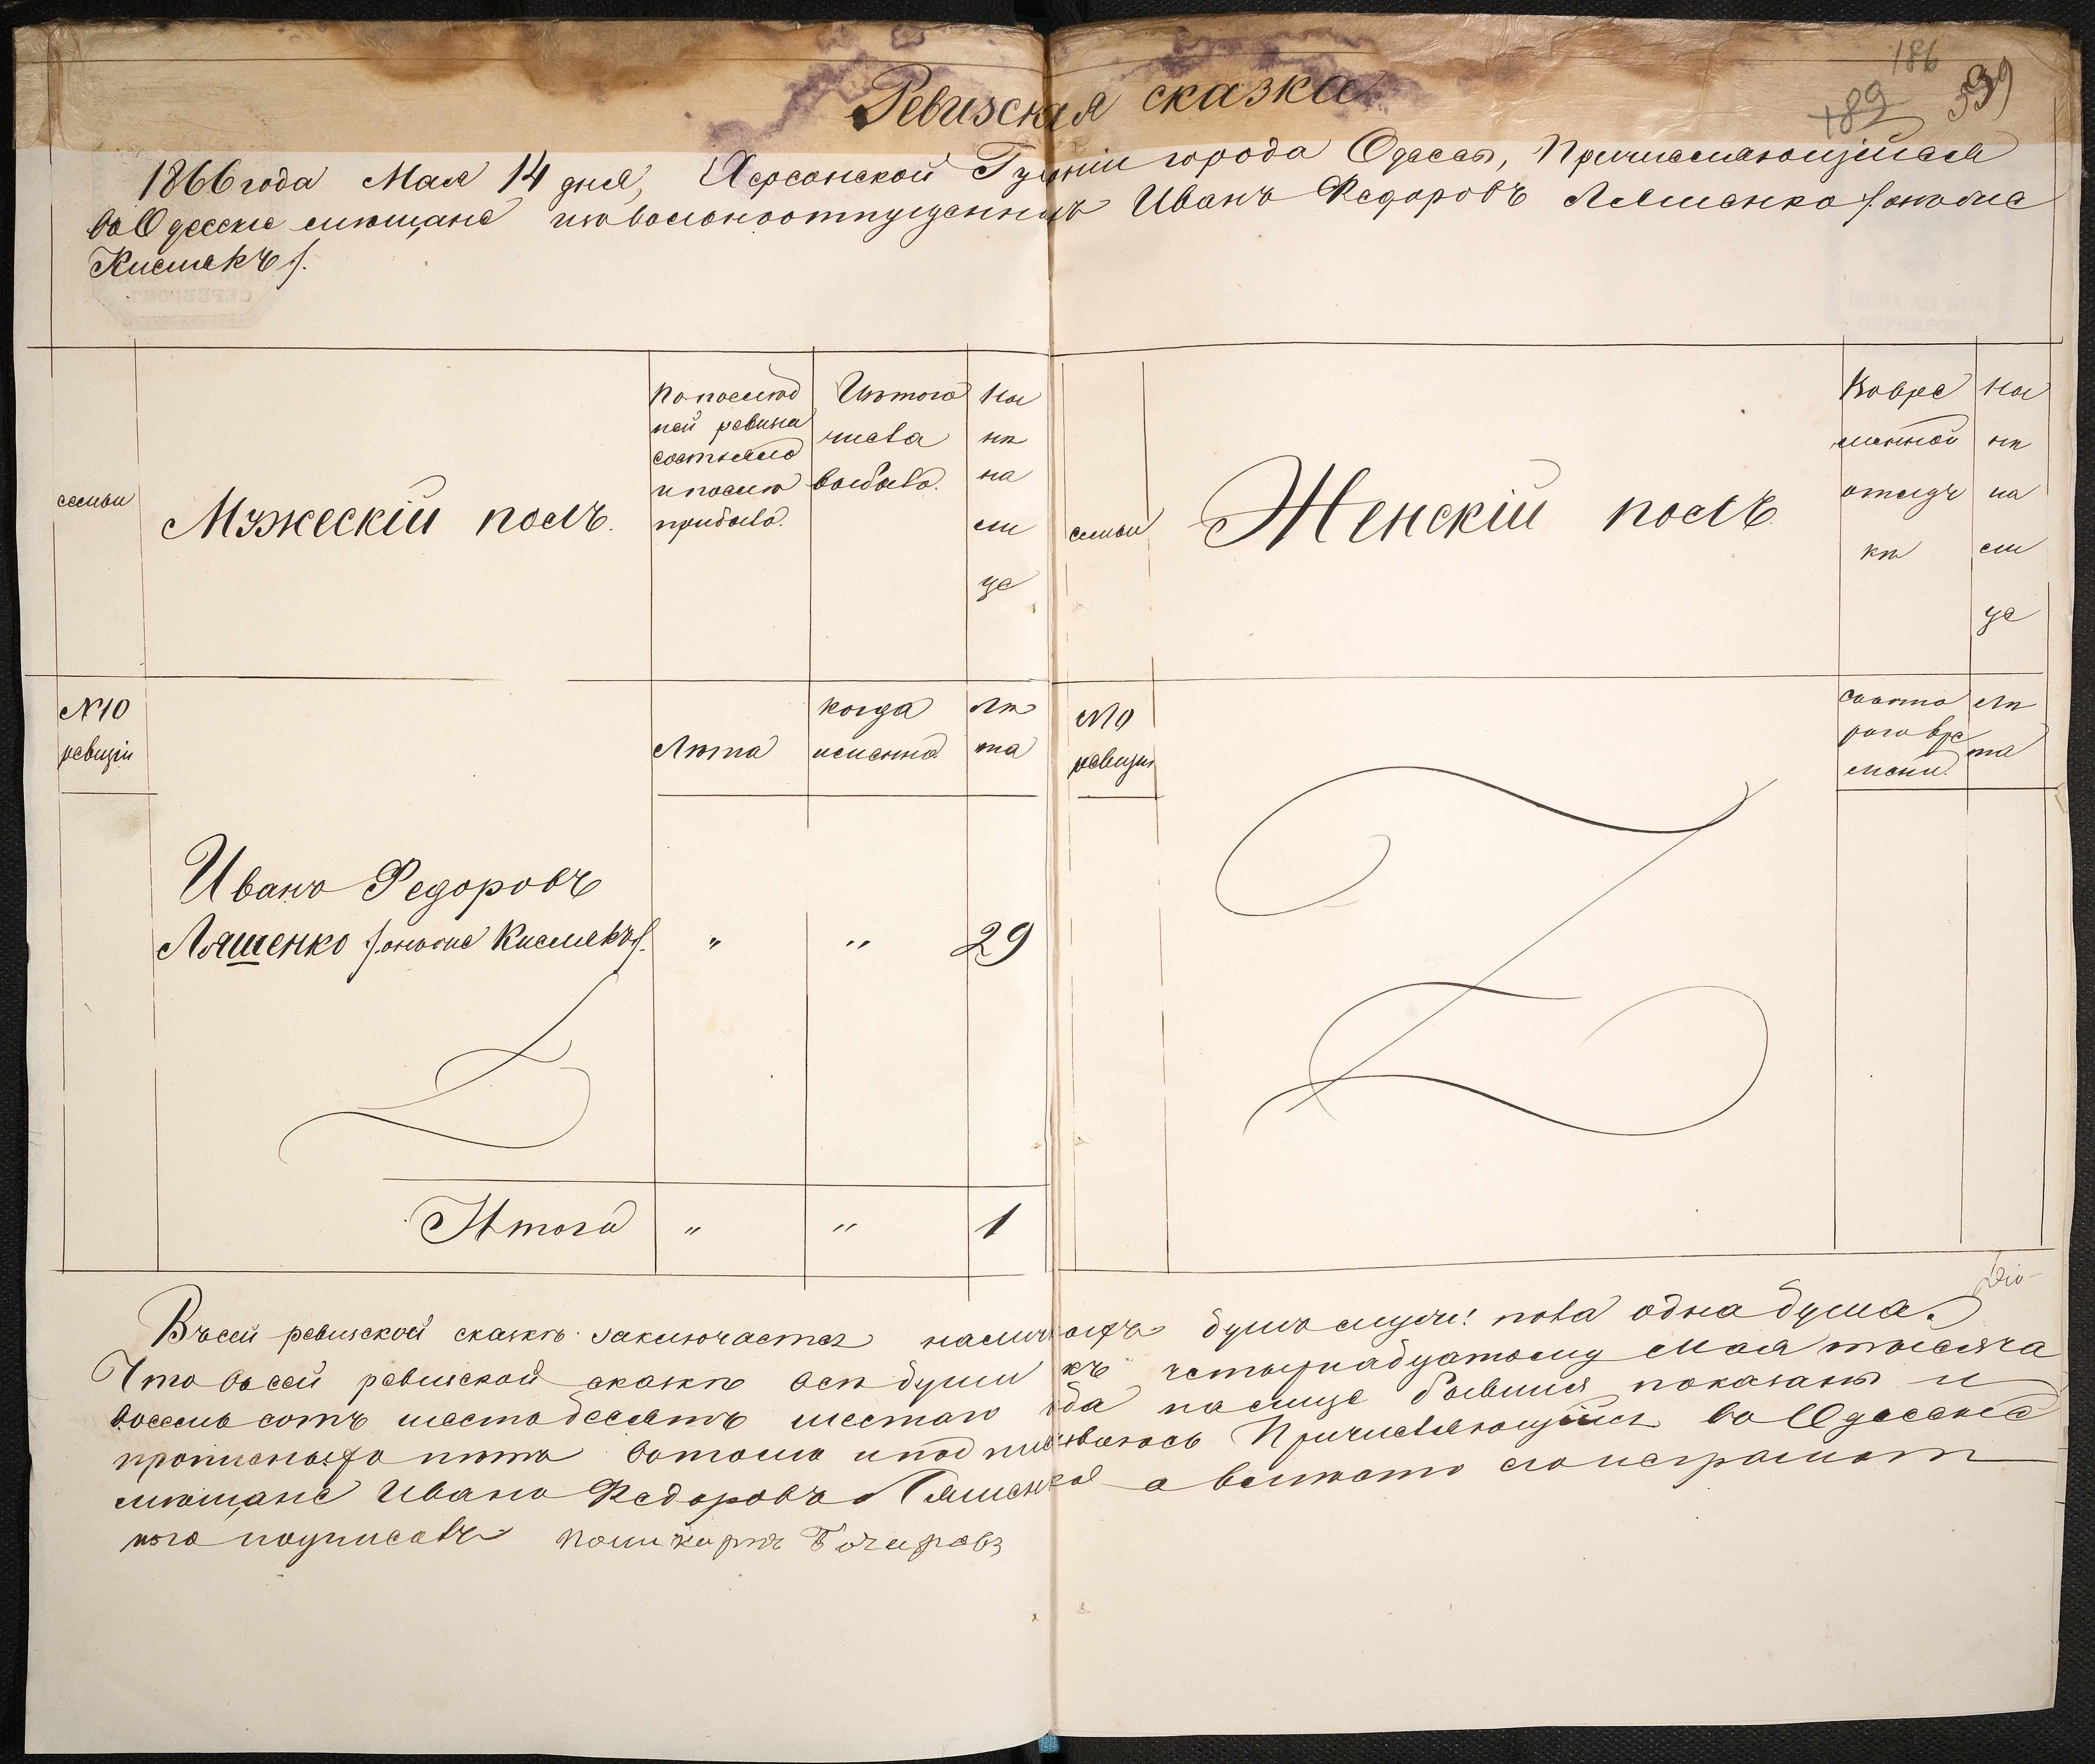 186
189
339
Ревизская сказка
1866 года Мая 14 дня, Херсонской Губерніи города Одессы, Причисляющійся
во Одесскіе мѣщане изъ вольноотпущенныхъ Иванъ Федоровъ Ляшенко /: онъ же
Кисмекъ :/.
семьи
Мужескій полъ.
По послѣд
ней ревизіи
состояло
и послѣ
прибыло.
Изъ того
числа
выбыло.
Ны
нѣ
на
ли
це
семьи
Женскій полъ.
Во вре
менной
отлуч
кѣ
Ны
нѣ
на
ли
це
№ 10
ревизіи
Лѣта
когда
именно
лѣ
та
№ 10
ревизіи
съ кото
раго вре
мени.
Лѣ
та
Иванъ Федоровъ
Ляшенко /: онъ же Кисмекъ :/.
"
"
29
Итого
"
"
1
Въ сей ревизской сказкѣ заключается наличныхъ душъ мужс! пола одна душа.
Что въ сей ревизской сказкѣ всѣ души къ четырнадцатому Мая тысяча
восемь сотъ шестьдесятъ шестаго года на лицо бывшія показаны и
прописныхъ нѣтъ въ томъ и подписываюсь Причисляющійся во Одесскіе
мѣщане Иванъ Федоровъ Ляшенко а вмѣсто его неграмот
наго подписалъ